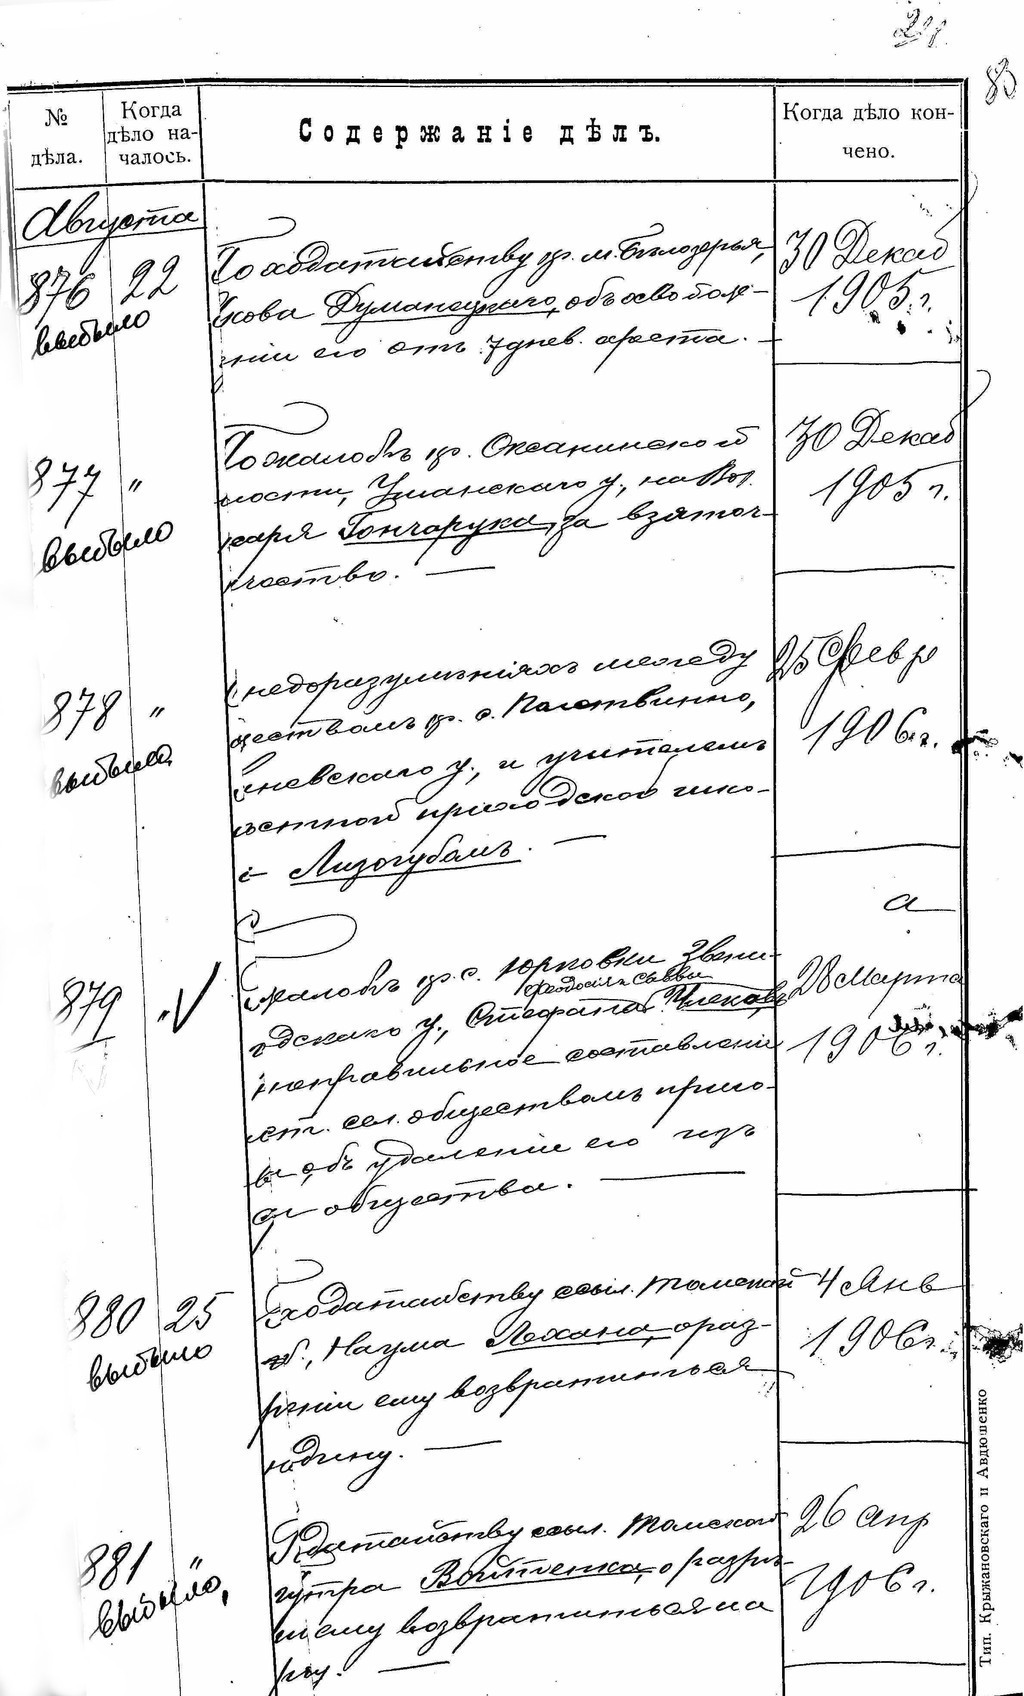 83
№ дѣла.
Когда дѣло на-
чалось.
Содержаніе дѣлъ.
Когда дѣло кон-
чено.
Августа
876 22
выбыло
По ходатайству кр. м. Бѣлозерья,
Якова Думанецкаго, объ освобож-
ніи его отъ 7 днев. ареста. —
30 Декаб
1905 г.
877 "
выбыло
По жалобѣ кр. Оксанинской
лости, Уманскаго у., на Вол.
саря Гончарука, за взяточ-
чество. —
30 Декаб
1905 г.
878 "
выбыло
недоразумѣніяхъ между
ществомъ кр. с.
невскаго у., и учителемъ
стной приходской шко-
Лизогубомъ. —
25 Февр
1906 г.
а
879 " V
жалобѣ кр. с. Юрковки Звени-
Феодосія и Саввы
родскаго у., Стефана
неправильное составленіе
ст. сел. обществомъ приго-
объ удаленіи его изъ
общества. —
28 Марта
1906 г.
880 25
выбыло
ходатайству ссыл. Томской
б., Наума Лохана, о раз-
ніи ему возвратиться
родину. —
4 Янв
1906 г.
881 "
выбыло,
датайству ссыл. Томской
Войтенка, о разрѣ-
ему возвратиться на
ну. —
26 апр
1906 г.
Тип. Крыжановскаго и Авдюшенко